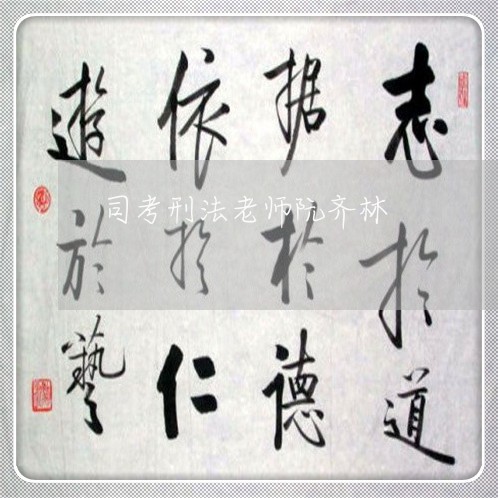 志於道
据於德
依於仁
遊於藝
司考刑法老师阮齐林